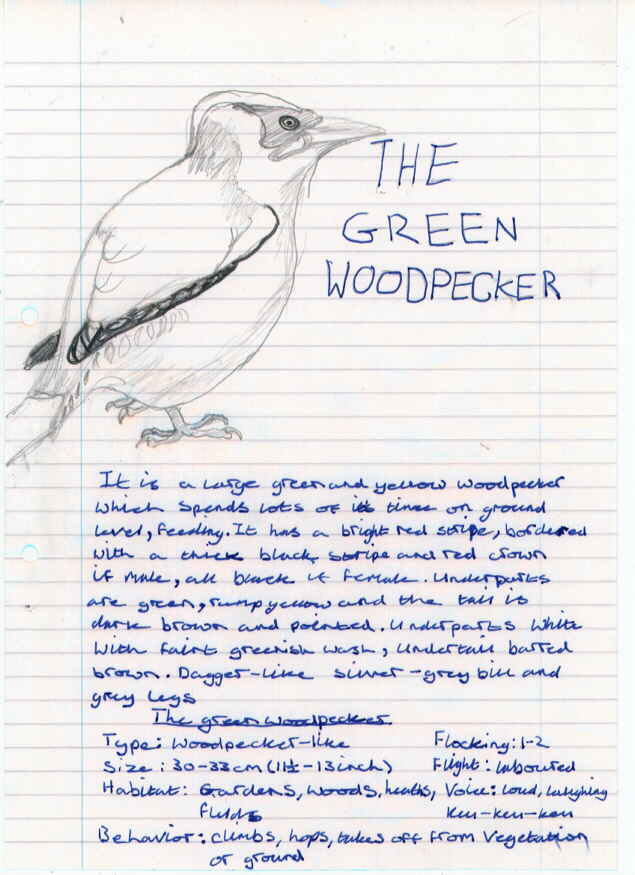 THE
GREEN
WOODPECKER
It is a large green and yellow woodpecker
which spends lots of its time on ground
level, feeding. It has a bright red stripe, bordered
with a thick black stripe and red crown
if male, all black if female. Underparts
are green, rump yellow and the tail is
dark brown and pointed. Underparts white
with faint greenish wash, undertail barred
brown. Dagger-like silver-grey bill and
grey legs
The green woodpecker.
Type: Woodpecker-like Flocking: 1-2
Size: 30-33cm (11½-13inch) Flight:
Habitat: Gardens, woods, heaths, Voice: loud, laughing
fields keu-keu-keu
Behavior: climbs, hops, takes off from vegetation
or ground